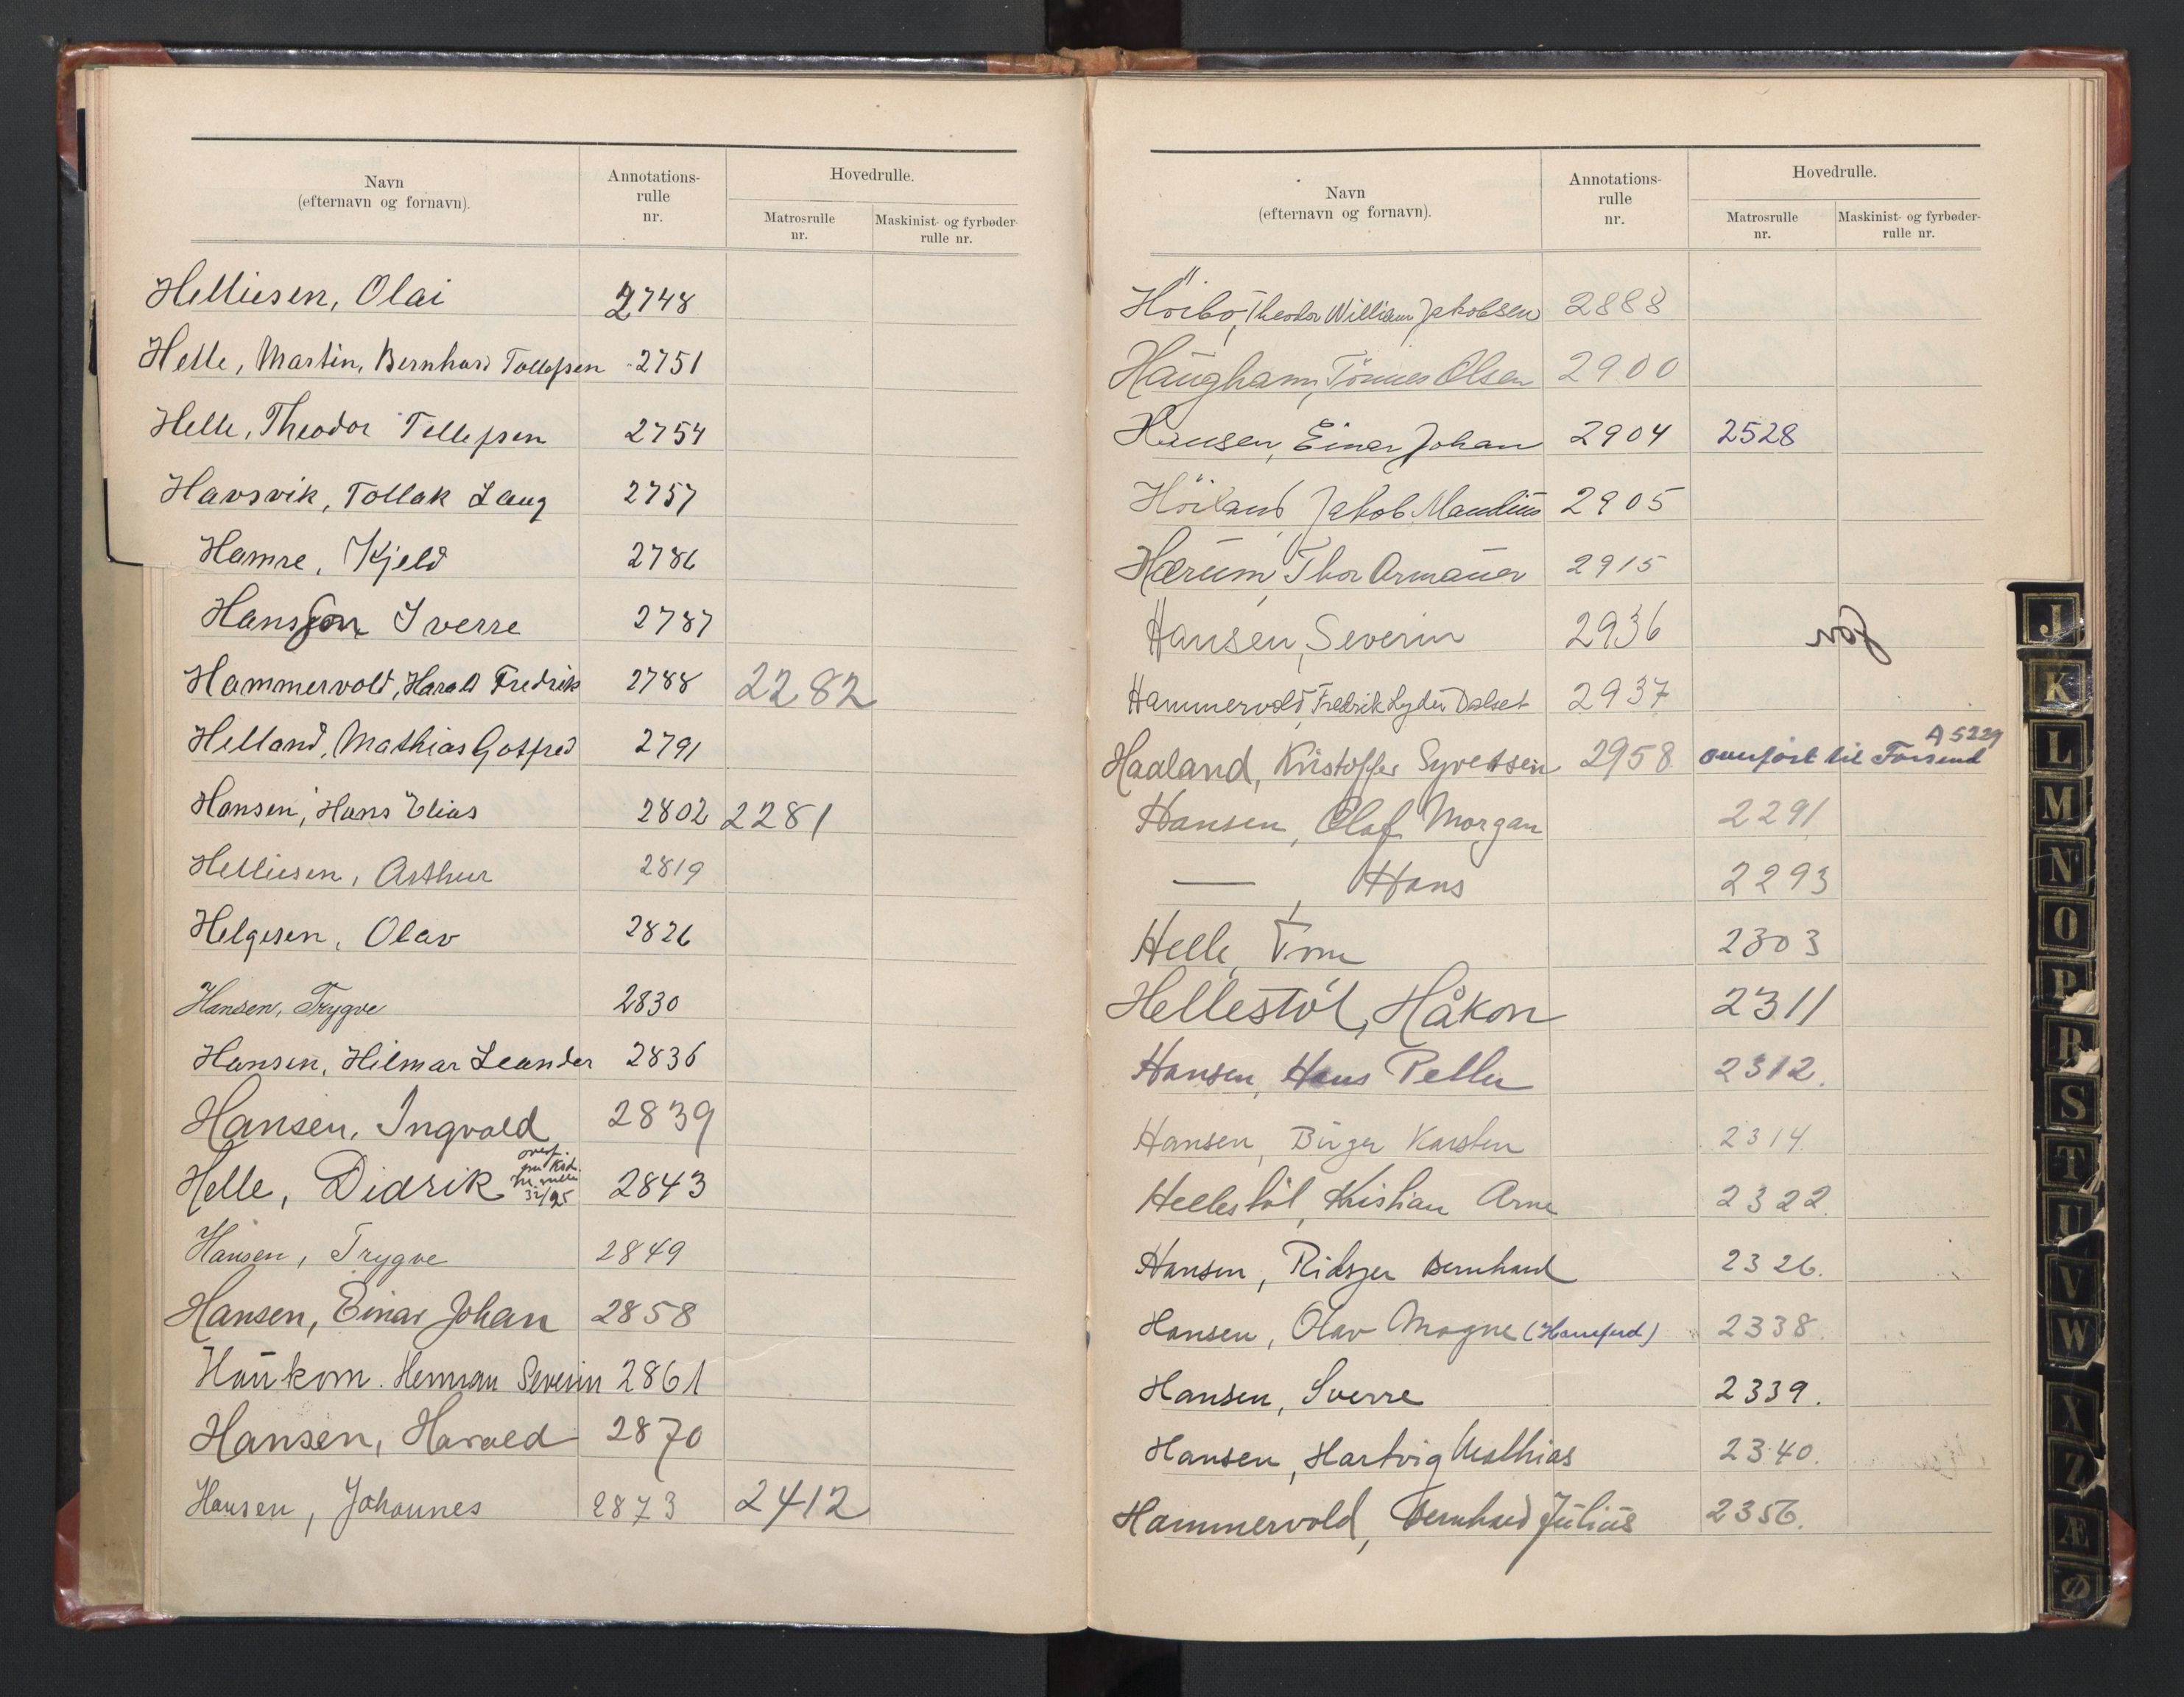 Navn
(efternavn og fornavn).
Annotations-
rulle
nr.
Hovedrulle.
Matrosrulle
nr.
Maskinist- og fyrbøder-
rulle nr.
Helliesen, Olai 2748
Helle, Martin, Bernhard Tollefsen 2751
Helle, Theodor Tollefsen 2754
Havsvik, Tollak Laug 2757
Hamre, Kjeld 2786
Hansson Sverre 2787
Hammervold, Harald Fredrik 2788 2282
Helland, Mathias Gotfred 2791
Hansen, Hans Elias 2802 2281
Helliesen, Arthur 2819
Helgesen, Olav 2826
Hansen, Trygve 2830
Hansen, Hilmar Leander 2836
Hansen, Ingvald 2839
Helle, Didrik 2843
32/25
Hansen, Trygve 2849
Hansen, Einar Johan 2858
Haukom. Herman Severin 2861
Hansen, Harald 2870
Hansen, Johannes 2873 2412
Navn
(efternavn og fornavn).
Annotations-
rulle
nr.
Hovedrulle.
Matrosrulle
nr.
Maskinist- og fyrbøder-
rulle nr.
Höibo, Theodor William Jakobsen 2888
Haugham, Tönnes Olsen 2900
Hansen, Einar Johan 2904 2528
Höiland, Jakob Maudius 2905
Hærum, Thor Armauer 2915
Hansen, Severin 2936
Hammervold, Fredrik Lyder Dalset 2937
Haaland, Kristoffer Syvertsen 2958 overført til A 5229
Hansen, Olaf Morgan 2291
— , Hans 2293
Helle, Tom 2303
Hellestöl, Håkon 2311
Hansen, Hans Peller 2312.
Hansen, Birger Karsten 2314
Hellestöl, Kristian Arne 2322.
Hansen, Bernhard 2326.
Hansen, Olav Magne 2338.
Hansen, Sverre 2339.
Hansen, Hartvig Mathias 2340.
Hammervold, Bernhard Julius 2356.
J
K
L
M
N
O
P
R
S
T
U
V
W
X
Z
Æ
Ø